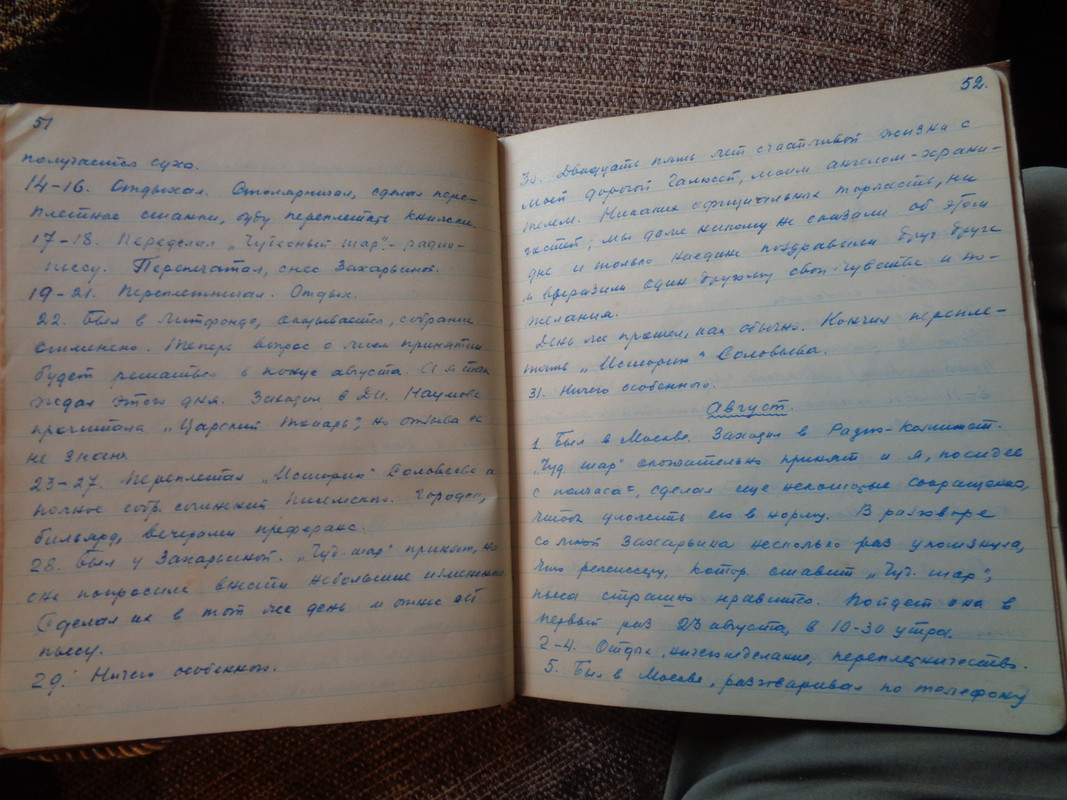 51
получается сухо.
14-16. Отдыхал. Столярничал, сделал пере-
плетные станки, буду переплетать книжки.
17-18. Переделал „Чудесный шар" - радио-
пьесу. Перепечатал, снес Захарьиной.
19-21. Переплетничал. Отдых.
22. Был в Литфонде, оказывается, собрание
отменено. Теперь вопрос о моем принятии
будет решаться в конце августа. А я так
ждал этого дня. Заходил в ДИ. Наумова
прочитала „Царский токарь", но отзыва ее
не знаю.
23-27. Переплетал „Историю" Соловьева и
полное собр. сочинений Писемского. Городки,
бильярд, вечерами преферанс.
28. Был у Захарьиной. „Чуд. шар" принят, но
она попросила внести небольшие изменения.
Сделал их в тот же день и отнес ей
пьесу.
29. Ничего особенного.
52.
30. Двадцать пять лет счастливой жизни с
моей дорогой Галюсей, моим ангелом-храни-
телем. Никаких официальных торжеств, ни
гостей; мы даже никому не сказали об этом
дне и только наедине поздравили друг друга
и выразили один другому свои чувства и по-
желания.
День же прошел, как обычно. Кончил перепле-
тать „Историю" Соловьева.
31. Ничего особенного.
Август.
1. Был в Москве. Заходил в Радио-Комитет.
„Чуд. шар" окончательно принят и я, посидев
с полчаса, сделал еще некоторые сокращения,
чтобы уложить его в норму. В разговоре
со мной Захарьина несколько раз упомянула,
что режиссеру, котор. ставит „Чуд. шар",
пьеса страшно нравится. Пойдет она в
первый раз 23 августа, в 10-30 утра.
2-4. Отдых, ничегонеделание, переплетничество.
5. Был в Москве, разговаривал по телефону